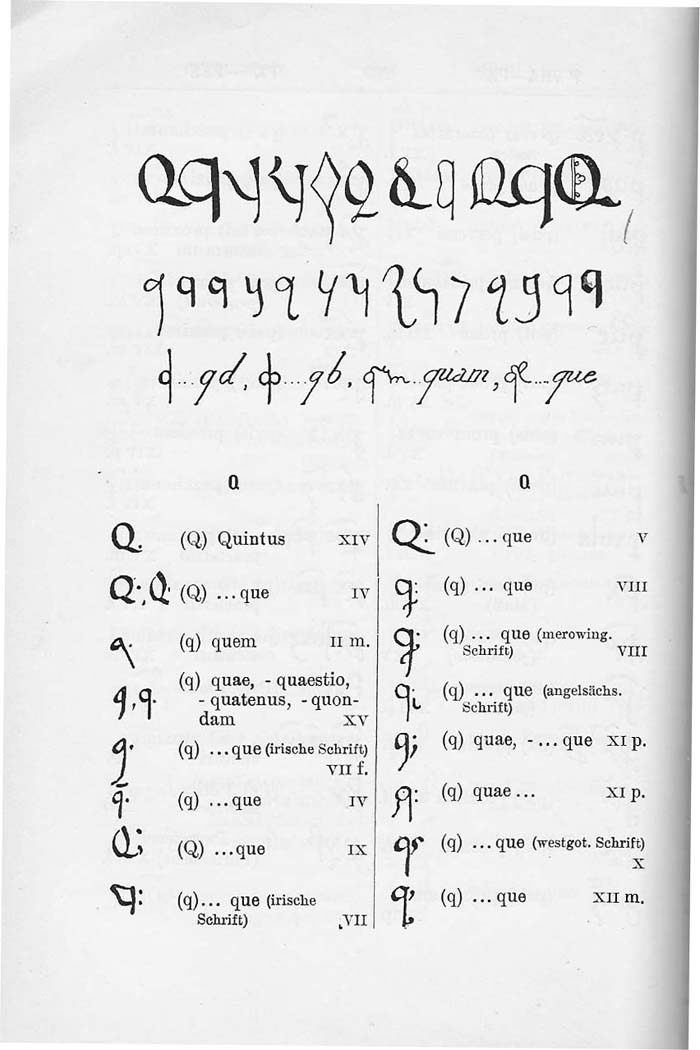 qd, qb, quam, que
Q
Q. (Q) Quintus XIV
Q:, Q: (Q) ...que IV
q (q) quem II m.
q, q. (q) quae, - quaestio,
- quatenus, - quon-
dam XV
q. (q) ...que (irische Schrift)
VII f.
q̄. (q) ...que IV
Q; (Q) ...que IX
q: (q)... que (irische
Schrift) VII
Q
Q: (Q) ...que V
q: (q) ... que VIII
q; (q) ... que (merowing.
Schrift) VIII
q: (q) ... que (angelsächs.
Schrift)
q; (q) quae, -...que XI p.
q: (q) quae... XI p.
q (q) ...que (westgot. Schrift)
X
q: (q) ...que XII m.